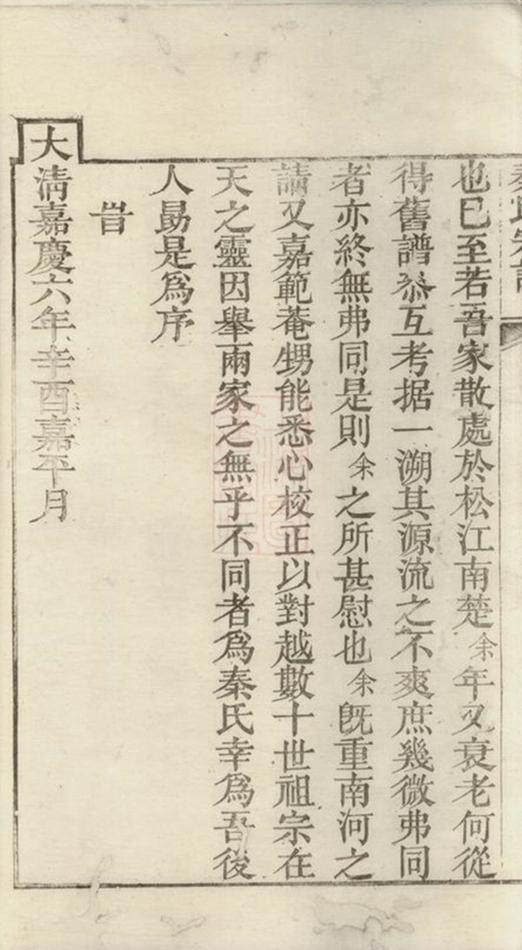 也已至若吾家散處於松江南楚余年又衰老何從
得舊譜叅互考据一溯其源流之不爽庶幾微弗同
者亦終無弗同是則余之所甚慰也余旣重南河之
請又嘉範菴甥能悉心校正以對越數十世祖宗在
天之靈因舉兩家之無乎不同者爲秦氏幸爲吾後
人勗是爲序
旹
大淸嘉慶六年辛酉嘉平月